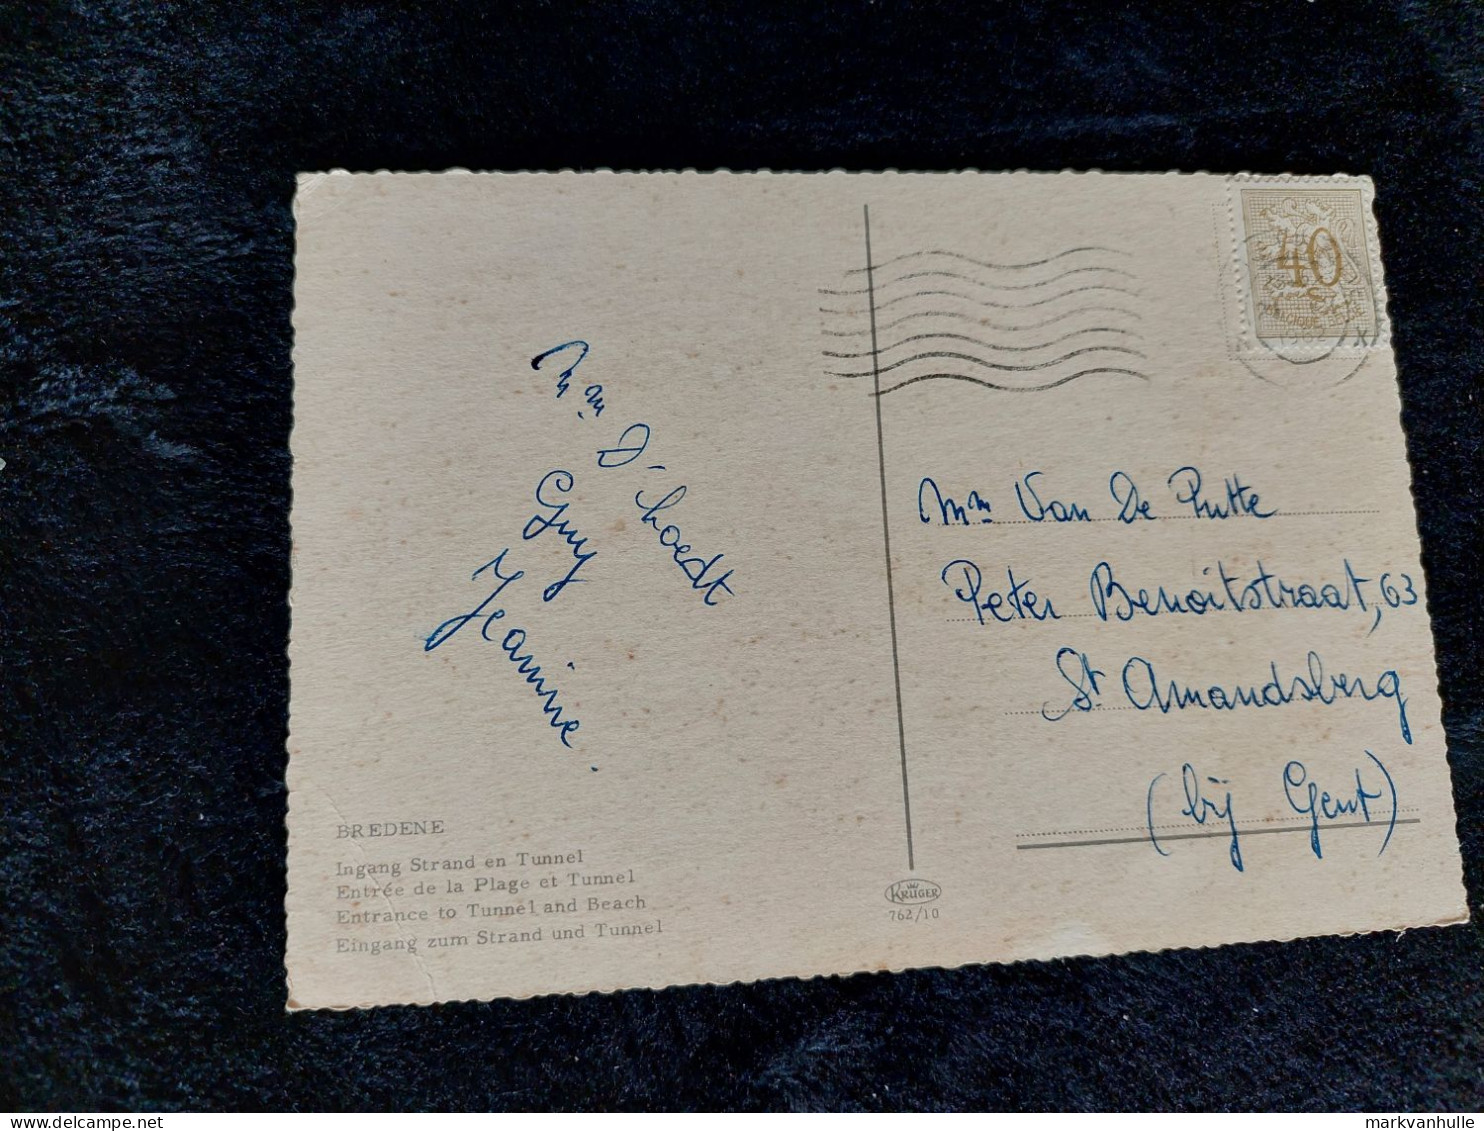 Mm D'hoedt
Guy
Jeannine.
BREDENE
Ingang Strand en Tunnel
Entrée de la Plage et Tunnel
Entrance to Tunnel and Beach
Eingang zum Strand und Tunnel
KRÜGER
762/10
40
1962
X
Mm Van De Putte
Peter Benoitstraat, 63
St Amandsberg
(bij Gent)
markvanhulle